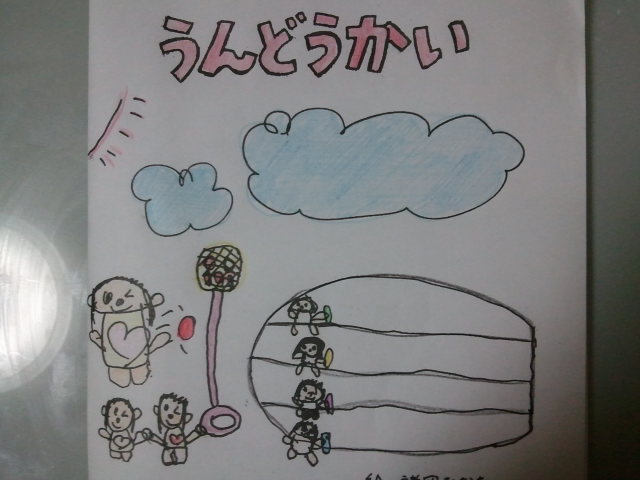 うんどうかい